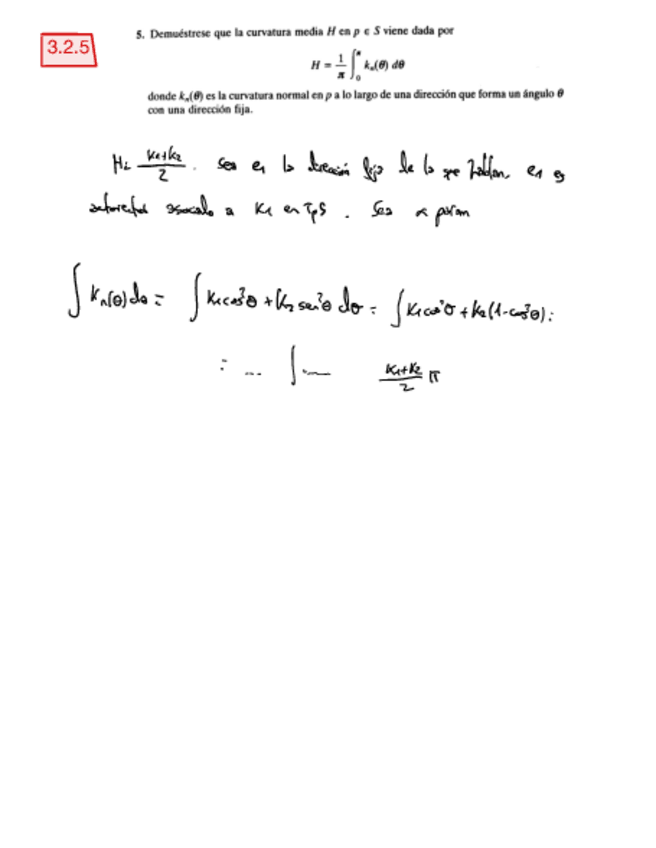 3.2.5
5. Demuéstrese que la curvatura media H en p ∈ S viene dada por
H = 1/π ∫₀^π kₙ(θ) dθ
donde kₙ(θ) es la curvatura normal en p a lo largo de una dirección que forma un ángulo θ
con una dirección fija.
H = (k₁+k₂)/2 . Sea e₁ la dirección fija de la que hablan, e₁ es
autovector asociado a k₁ en TₚS . Sea α
∫ kₙ(θ) dθ = ∫ k₁cos²θ + k₂ sen²θ dθ = ∫ k₁cos²θ + k₂(1-cos²θ) =
= ... ∫ ... (k₁+k₂)/2 π